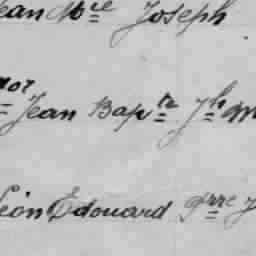 ean Mce Joseph
Jean Bapte Jh M
Léon Edouard Pierre J